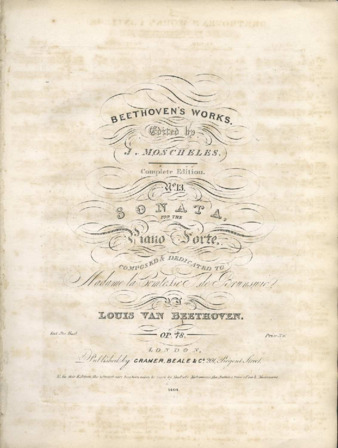 BEETHOVEN'S WORKS,
Edited by
J. MOSCHELES.
Complete Edition.
SONATA,
FOR THE
Piano Forte,
COMPOSED & DEDICATED TO
Madame la Comtesse de Brunswic
BY
LOUIS VAN BEETHOVEN.
OP. 78.
LONDON,
Published by CRAMER, BEALE & Co. 201, Regent Street